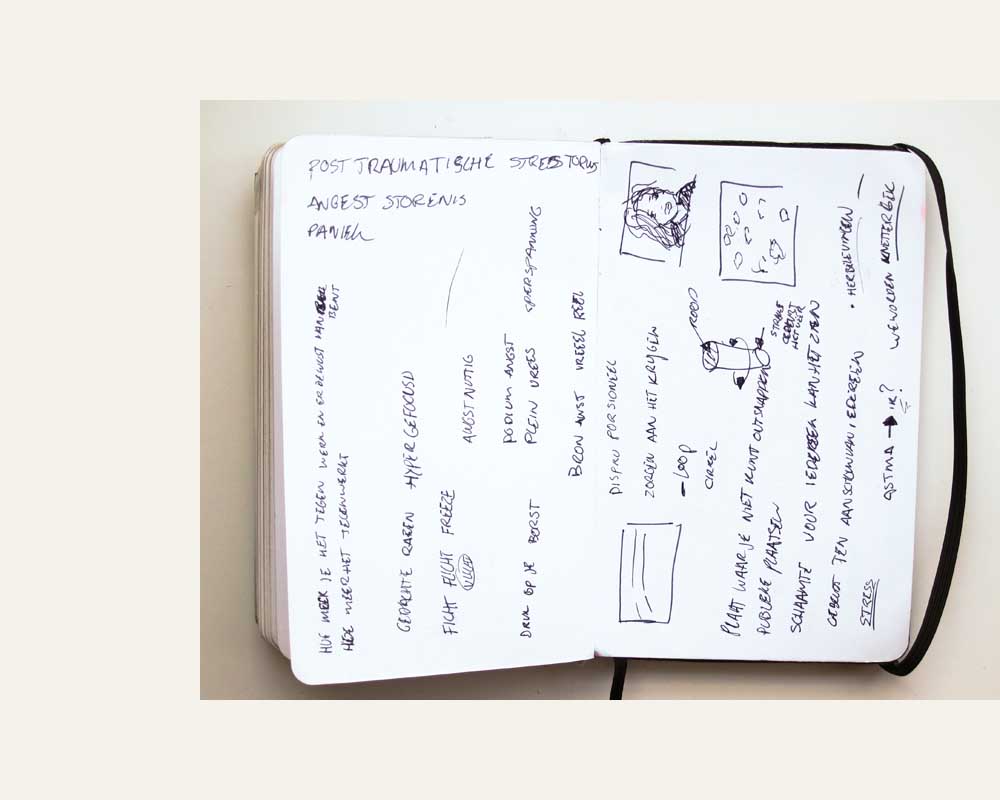 POST TRAUMATISCHE STRESS
ANGEST STORENIS
PANIEK
HOE MEER JE HET TEGEN WERK EN ER BEWUST VAN
BENT
HOE MEER HET TEGENWERKT
GEDACHTE RAZEN HYPER GEFOCUSD
FIGHT FLIGHT FREEZE
VLUCHT
ANGST NUTTIG
PODIUM ANGST
PLEIN VREES
OVERSPANNING
DRUK OP JE BORST
BRON ANGST IRREEL REEL
DISPRO PORSIONEEL
ZORGEN AAN HET KRYGEN
- LOOP
CIRKEL
ROOD
PLAAT WAAR JE NIET KUNT ONTSNAPPEN
PUBLIEKE PLAATSEN
SCHAAMTE VOOR IEDEREEN KAN HET ZIEN
TEN AANSCHOUW VAN IEDEREEN
• HERBELEVINGEN
STRESS
ASTMA → IK?
GEWORDEN KNETTERGEK